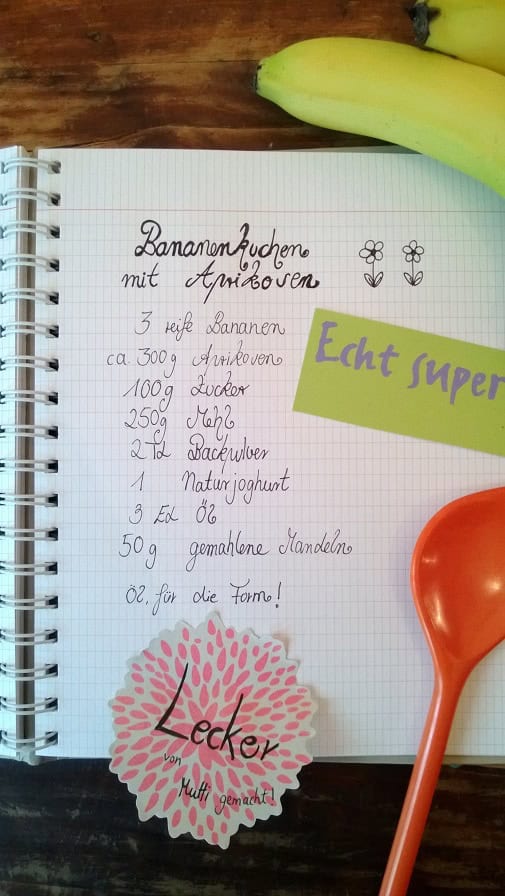 Bananenkuchen
mit Aprikosen
3 reife Bananen
ca. 300g Aprikosen
100g Zucker
250g Mehl
2 Tl Backpulver
1 Naturjoghurt
3 El Öl
50g gemahlene Mandeln
Öl, für die Form!
Echt super
Lecker
von
Mutti gemacht!